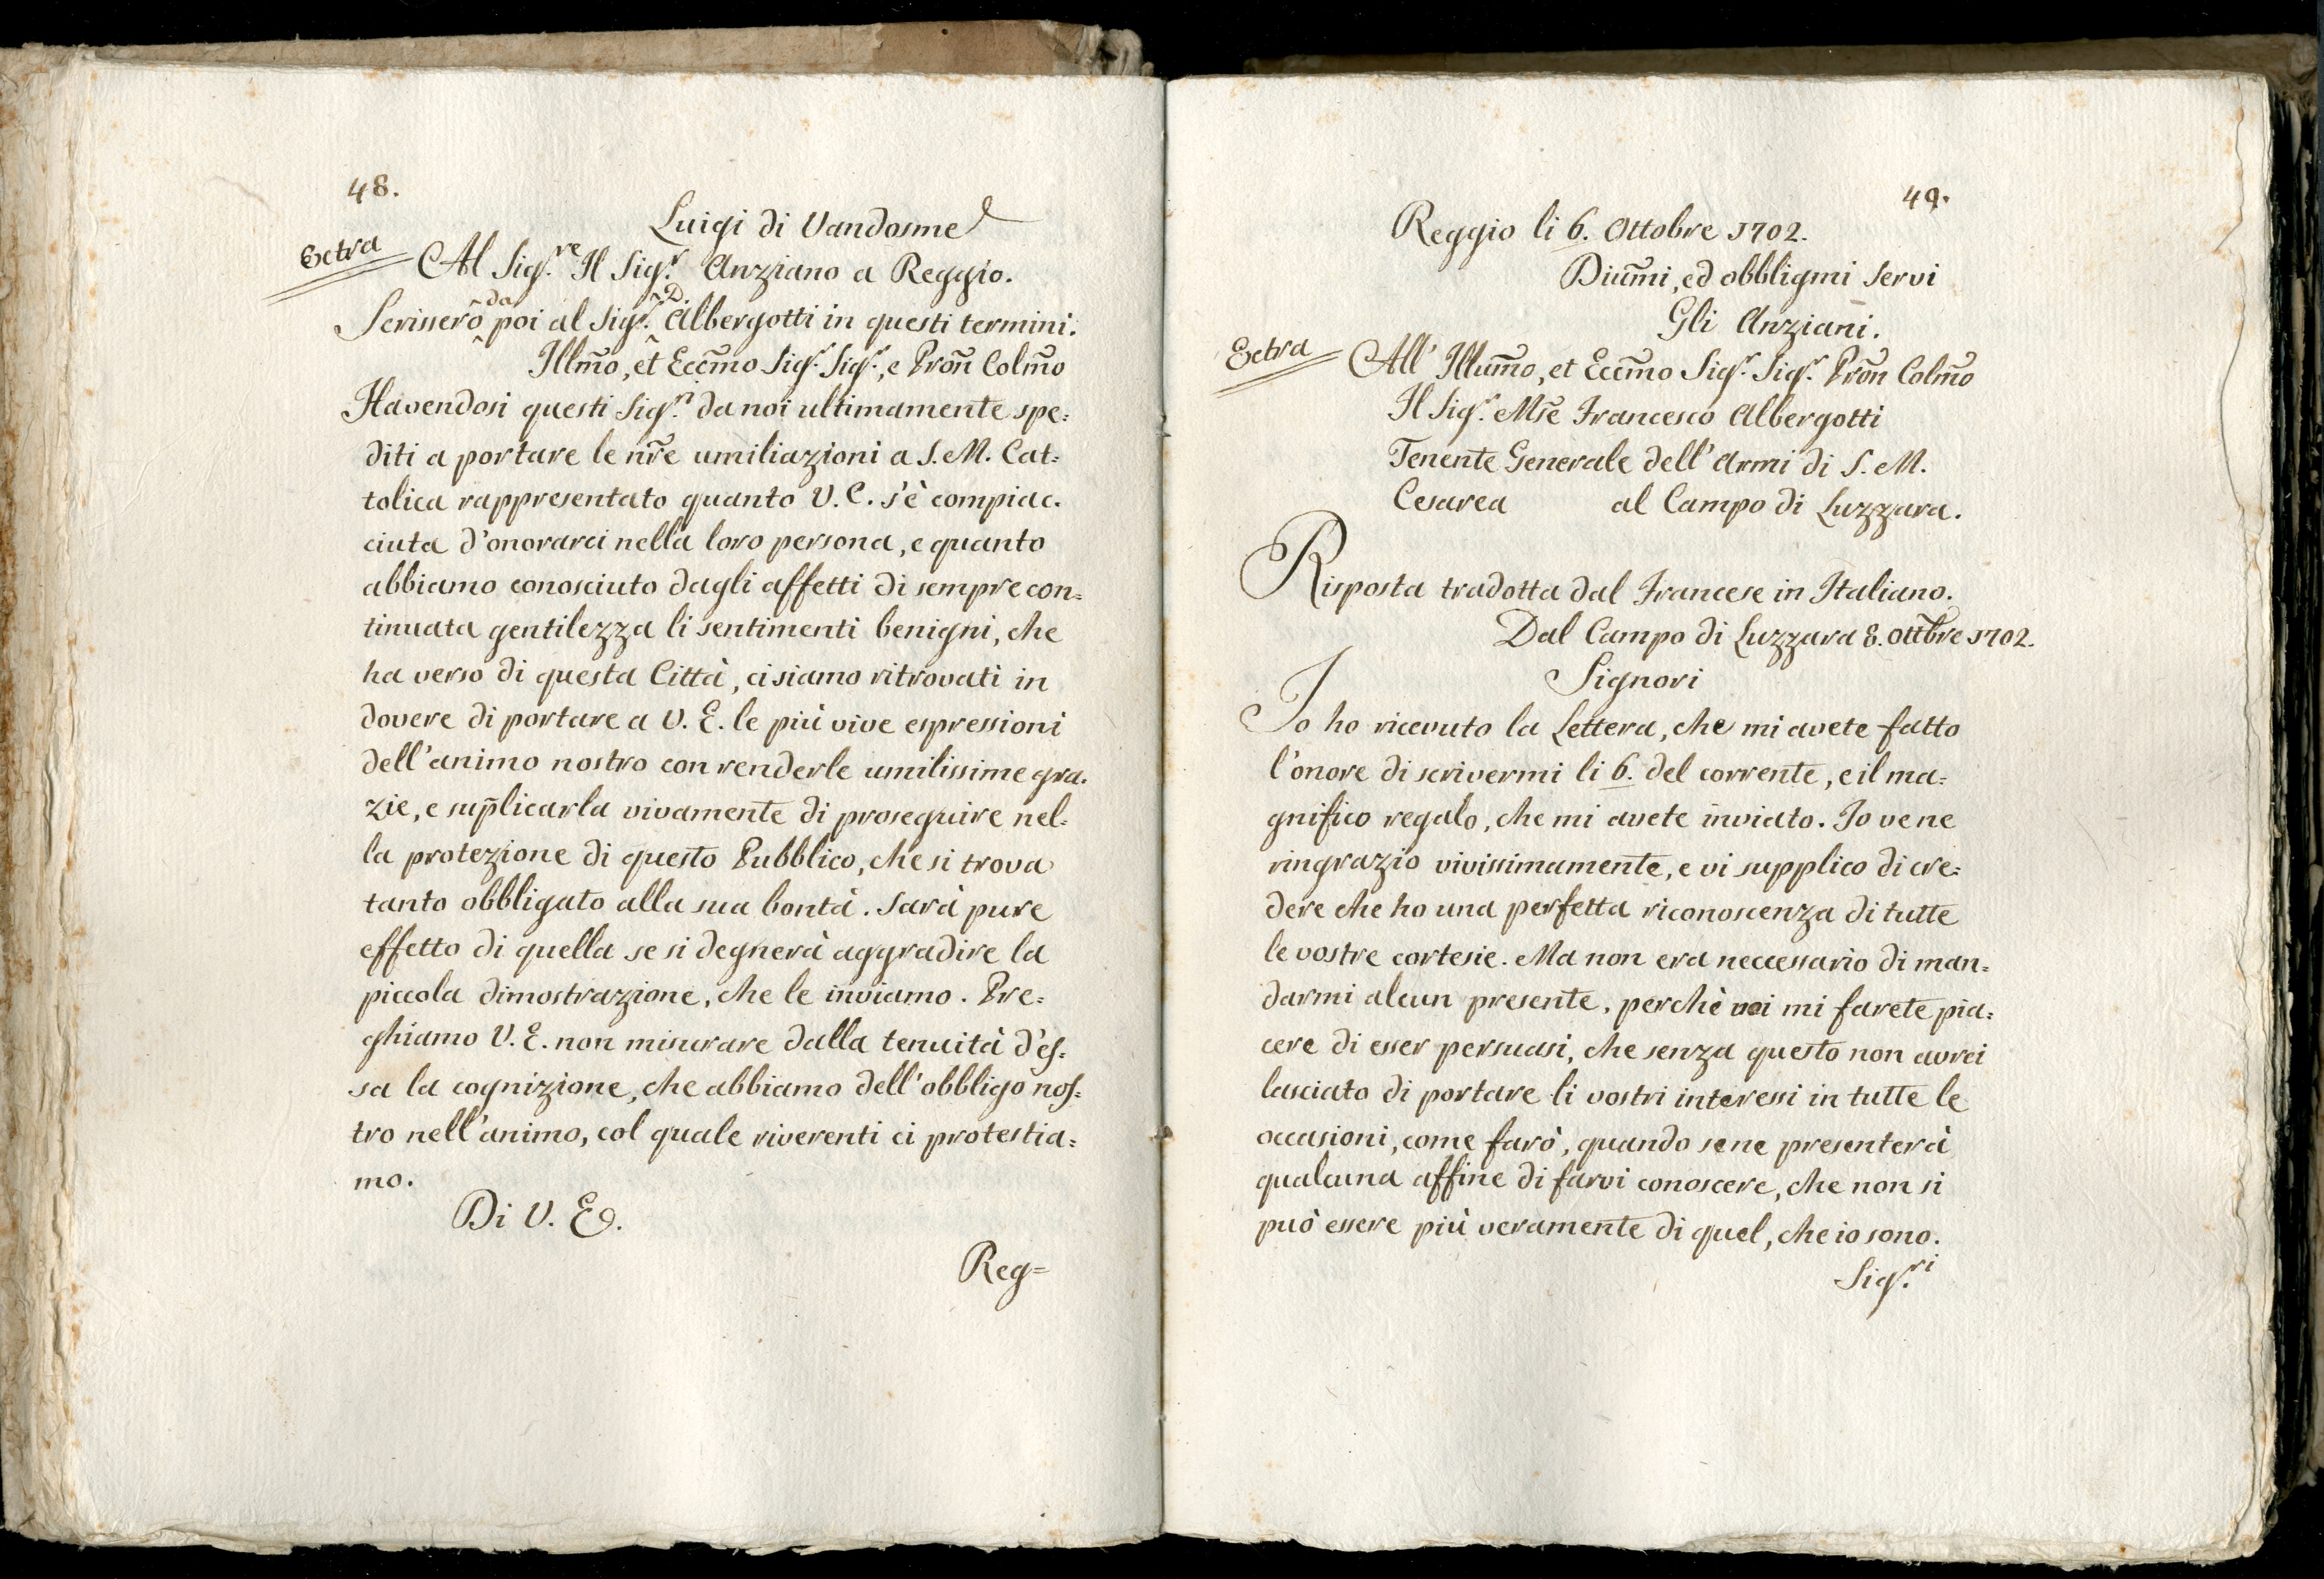 48.
Luigi di Vandosme
Extra Al Sig.re Il Sig.r Anziano a Reggio.
Scrissero da poi al Sig.r D. Albergotti in questi termini.
Illm̃o, et Eccm̃o Sig.r Sig.r, e Proñ Colm̃o
Havendosi questi Sig.ri da noi ultimamente spe=
diti a portare le nr̃e umiliazioni a S. M. Cat=
tolica rappresentato quanto V. E. s'è compiac=
ciuta d'onorarci nella loro persona, e quanto
abbiamo conosciuto dagli affetti di sempre con=
tinuata gentilezza li sentimenti benigni, che
ha verso di questa Città, ci siamo ritrovati in
dovere di portare a V. E. le più vive espressioni
dell'animo nostro con renderle umilissime gra=
zie, e sup̃licarla vivamente di proseguire nel=
la protezione di questo Pubblico, che si trova
tanto obbligato alla sua bontà. Sarà pure
effetto di quella se si degnerà aggradire la
piccola dimostrazione, che le inviamo. Pre=
ghiamo V. E. non misurare dalla tenuità d'es=
sa la cognizione, che abbiamo dell'obbligo nos=
tro nell'animo, col quale riverenti ci protestia=
mo.
Di V. E.
Reg=
49.
Reggio li 6. Ottobre 1702.
Dium̃i, ed obbligmi servi
Gli Anziani.
Extra All' Illum̃o, et Eccm̃o Sig.r Sig.r Proñ Colm̃o
Il Sig.r Mse Francesco Albergotti
Tenente Generale dell'Armi di S. M.
Cesarea al Campo di Luzzara.
Risposta tradotta dal Francese in Italiano.
Dal Campo di Luzzara 8. Ottbre 1702.
Signori
Io ho ricevuto la Lettera, che mi avete fatto
l'onore di scrivermi li 6. del corrente, e il ma=
gnifico regalo, che mi avete inviato. Io ve ne
ringrazio vivissimamente, e vi supplico di cre=
dere che ho una perfetta riconoscenza di tutte
le vostre cortesie. Ma non era neccessario di man=
darmi alcun presente, perchè voi mi farete pia=
cere di esser persuasi, che senza questo non avrei
lasciato di portare li vostri interessi in tutte le
occasioni, come farò, quando se ne presenterà
qualcuna affine di farvi conoscere, che non si
può essere più veramente di quel, che io sono.
Sig.ri